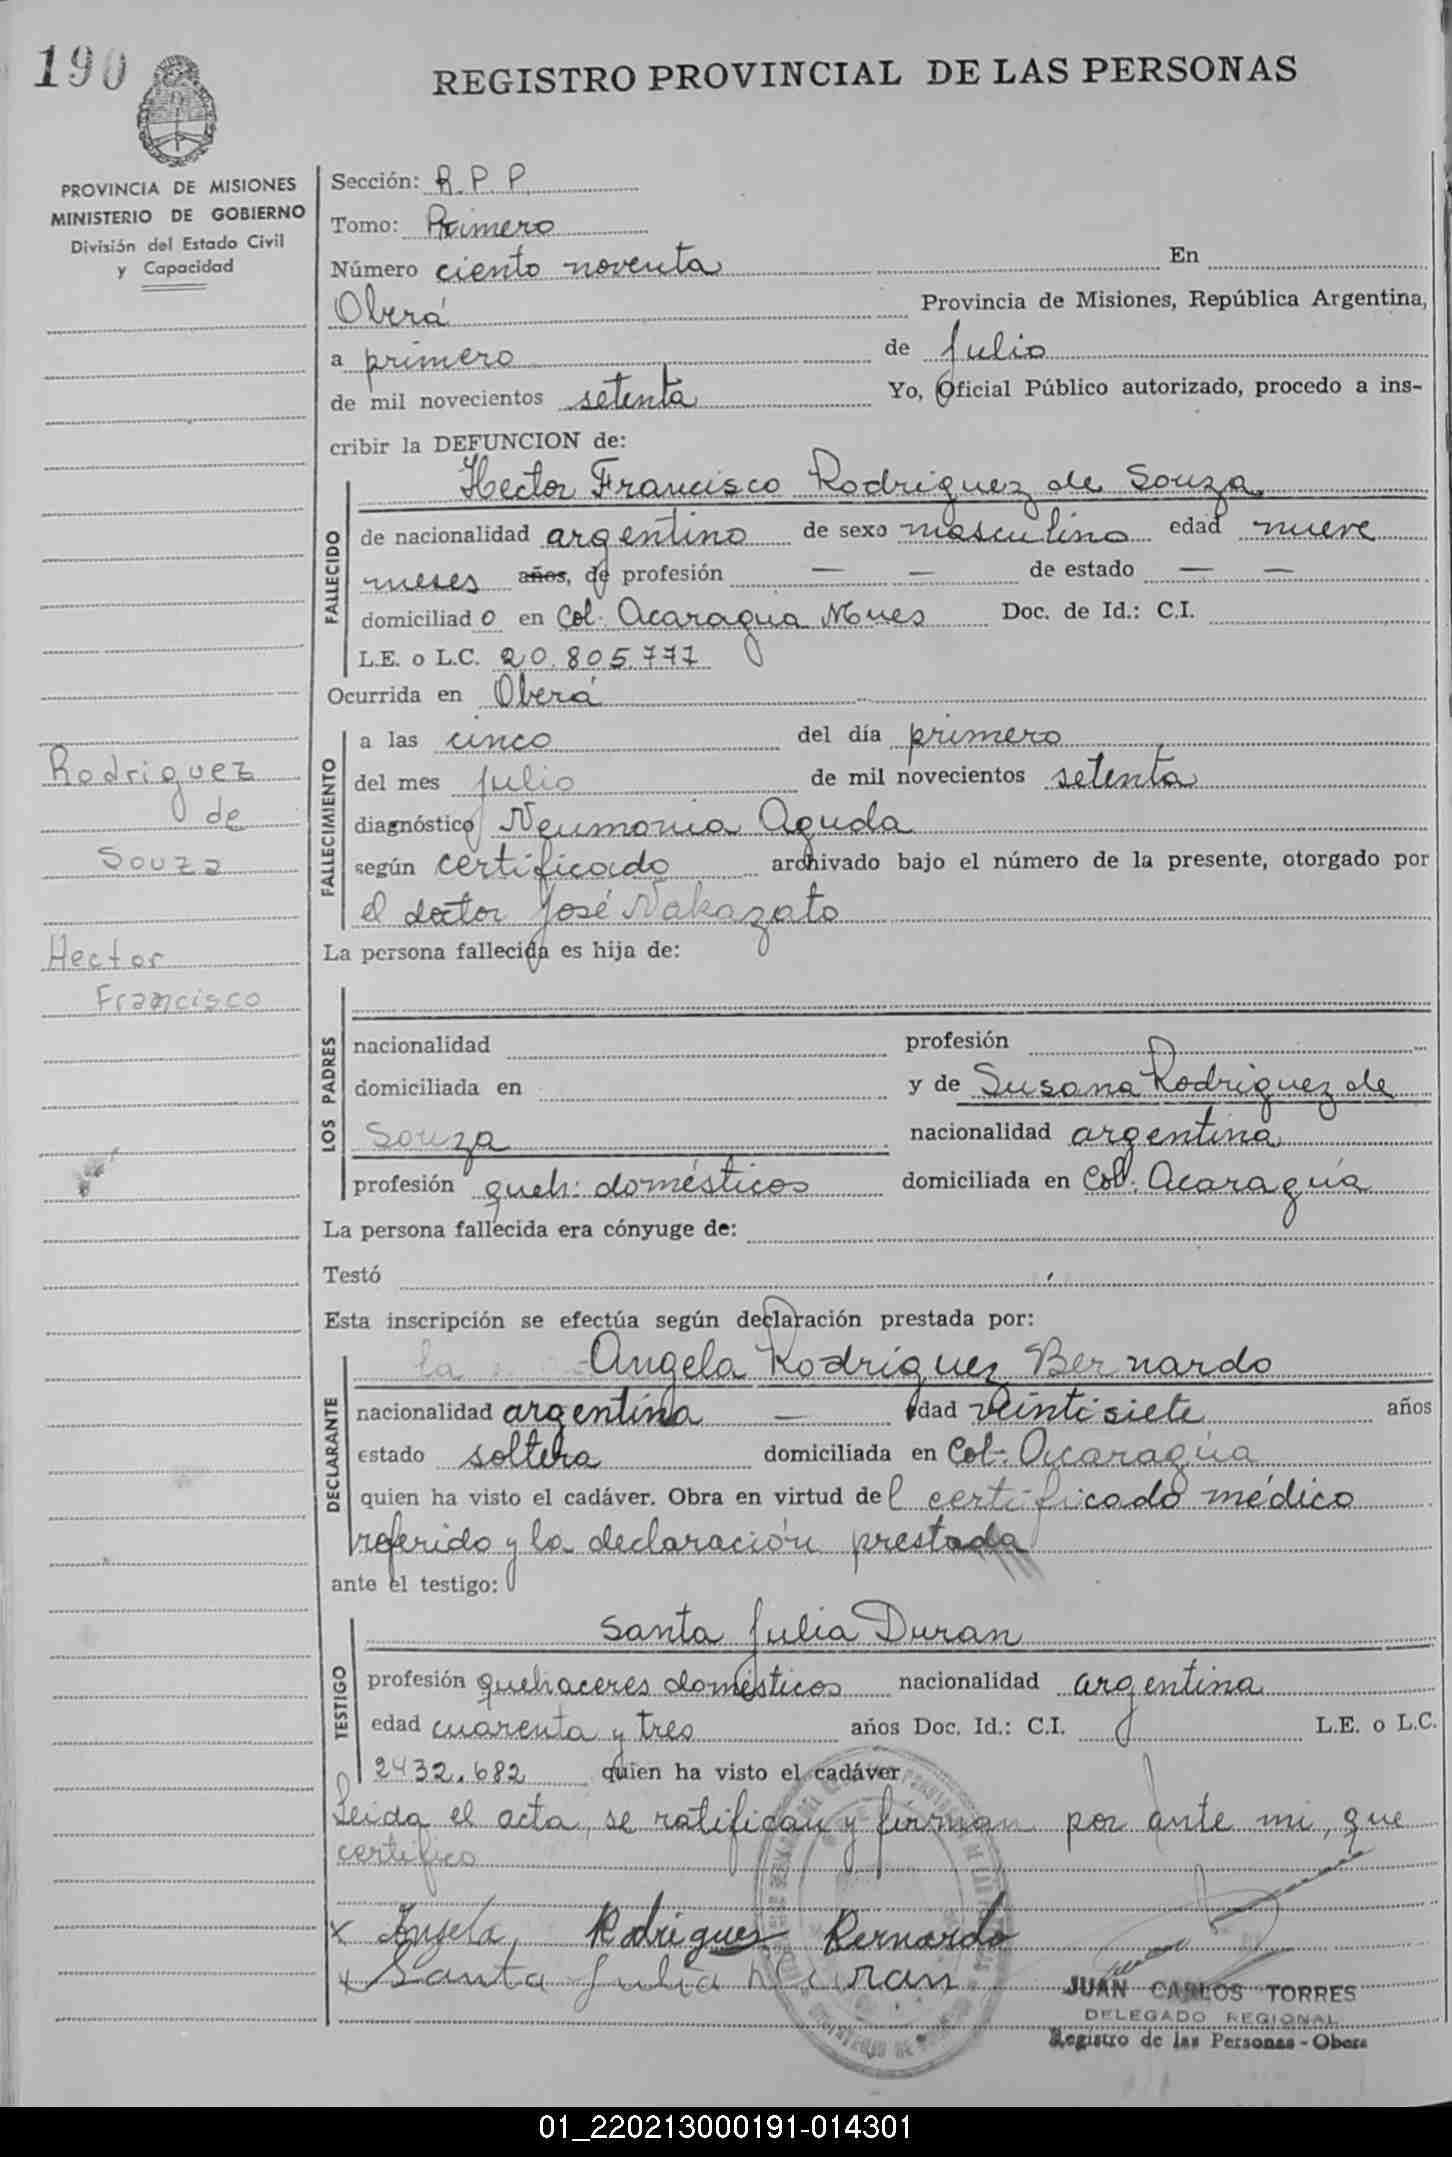 190
REGISTRO PROVINCIAL DE LAS PERSONAS
PROVINCIA DE MISIONES
MINISTERIO DE GOBIERNO
División del Estado Civil
y Capacidad
Sección: R.P.P.
Tomo: Primero
Número ciento noventa En
Oberá Provincia de Misiones, República Argentina,
a primero de Julio
de mil novecientos setenta Yo, Oficial Público autorizado, procedo a ins-
cribir la DEFUNCION de:
Hector Francisco Rodriguez de Souza
FALLECIDO
de nacionalidad argentino de sexo masculino edad nueve
meses años, de profesión — — de estado — —
domiciliado en Col. Acaragua Mnes Doc. de Id.: C.I.
L.E. o L.C. 20.805.777
Ocurrida en Oberá
FALLECIMIENTO
a las cinco del día primero
del mes julio de mil novecientos setenta
diagnóstico Neumonia Aguda
según certificado archivado bajo el número de la presente, otorgado por
el doctor José Nakazato
Rodriguez
de
Souza
Hector
Francisco
La persona fallecida es hija de:
LOS PADRES
nacionalidad profesión
domiciliada en y de Susana Rodriguez de
Souza nacionalidad argentina
profesión queh. domésticos domiciliada en Col. Acaragúa
La persona fallecida era cónyuge de:
Testó
Esta inscripción se efectúa según declaración prestada por:
DECLARANTE
la Angela Rodriguez Bernardo
nacionalidad argentina — edad veintisiete años
estado soltera domiciliada en Col. Acaragúa
quien ha visto el cadáver. Obra en virtud del certificado médico
referido y la declaración prestada
ante el testigo:
TESTIGO
Santa Julia Duran
profesión quehaceres domésticos nacionalidad argentina
edad cuarenta y tres años Doc. Id.: C.I. L.E. o L.C.
2432.682 quien ha visto el cadáver
Leida el acta, se ratifican y firman por ante mi, que
certifico
x Angela Rodrigues Bernardo
x Santa Julia Duran
JUAN CARLOS TORRES
DELEGADO REGIONAL
Registro de las Personas - Obera
01_220213000191-014301